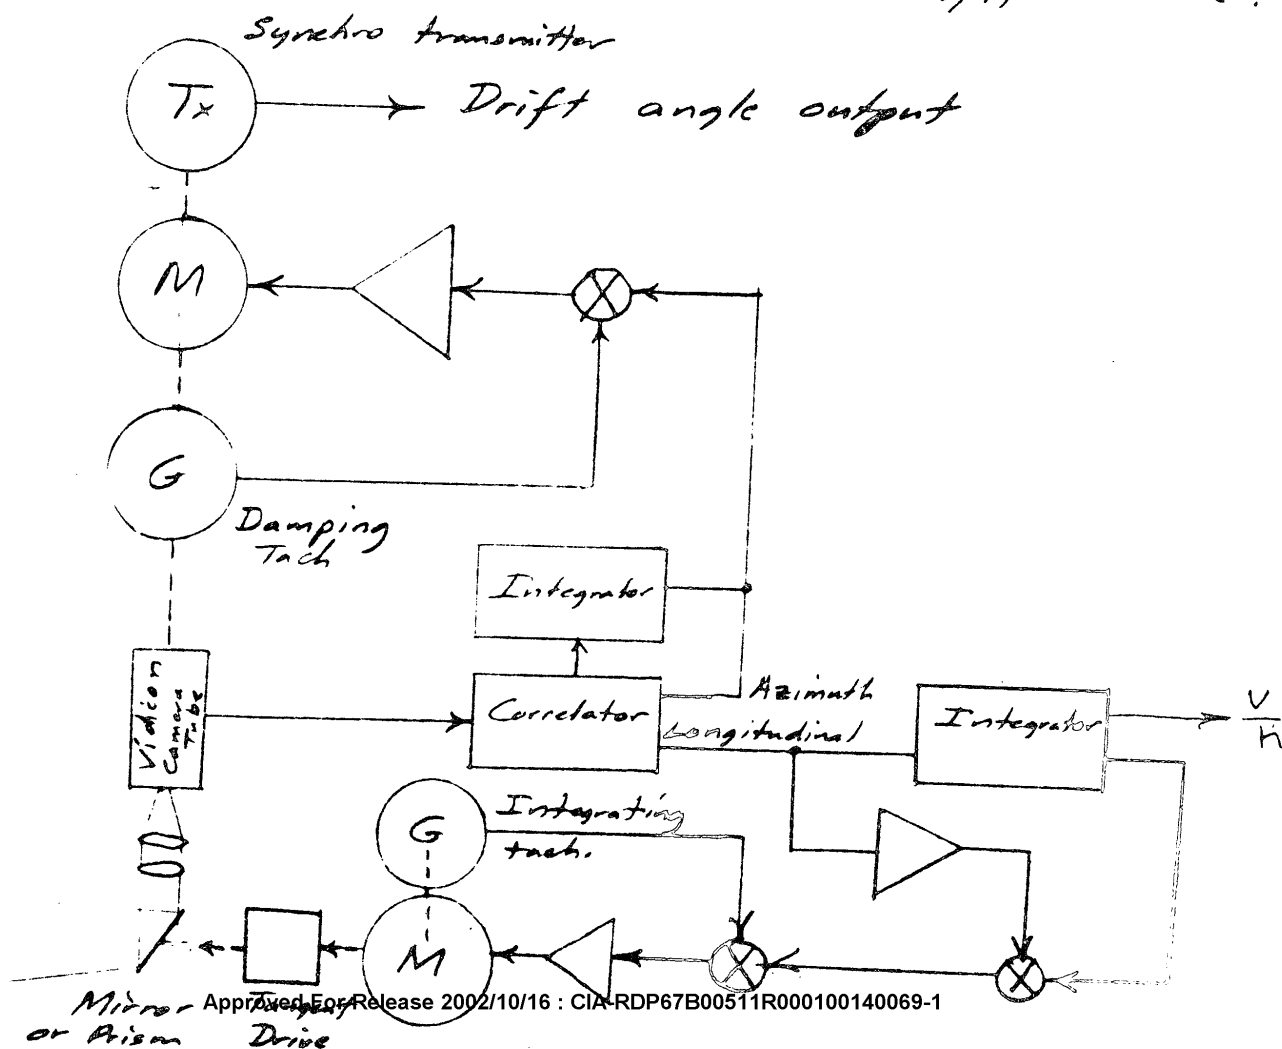 Synchro transmitter
Tx
Drift angle output
M
G
Damping
Tach
Integrator
Vidicon
Camera
Tube
Correlator
Azimuth
Longitudinal
Integrator
V
h
G
Integrating
tach.
M
Mirror
or Prism
Tangent
Drive
Approved For Release 2002/10/16 : CIA-RDP67B00511R000100140069-1